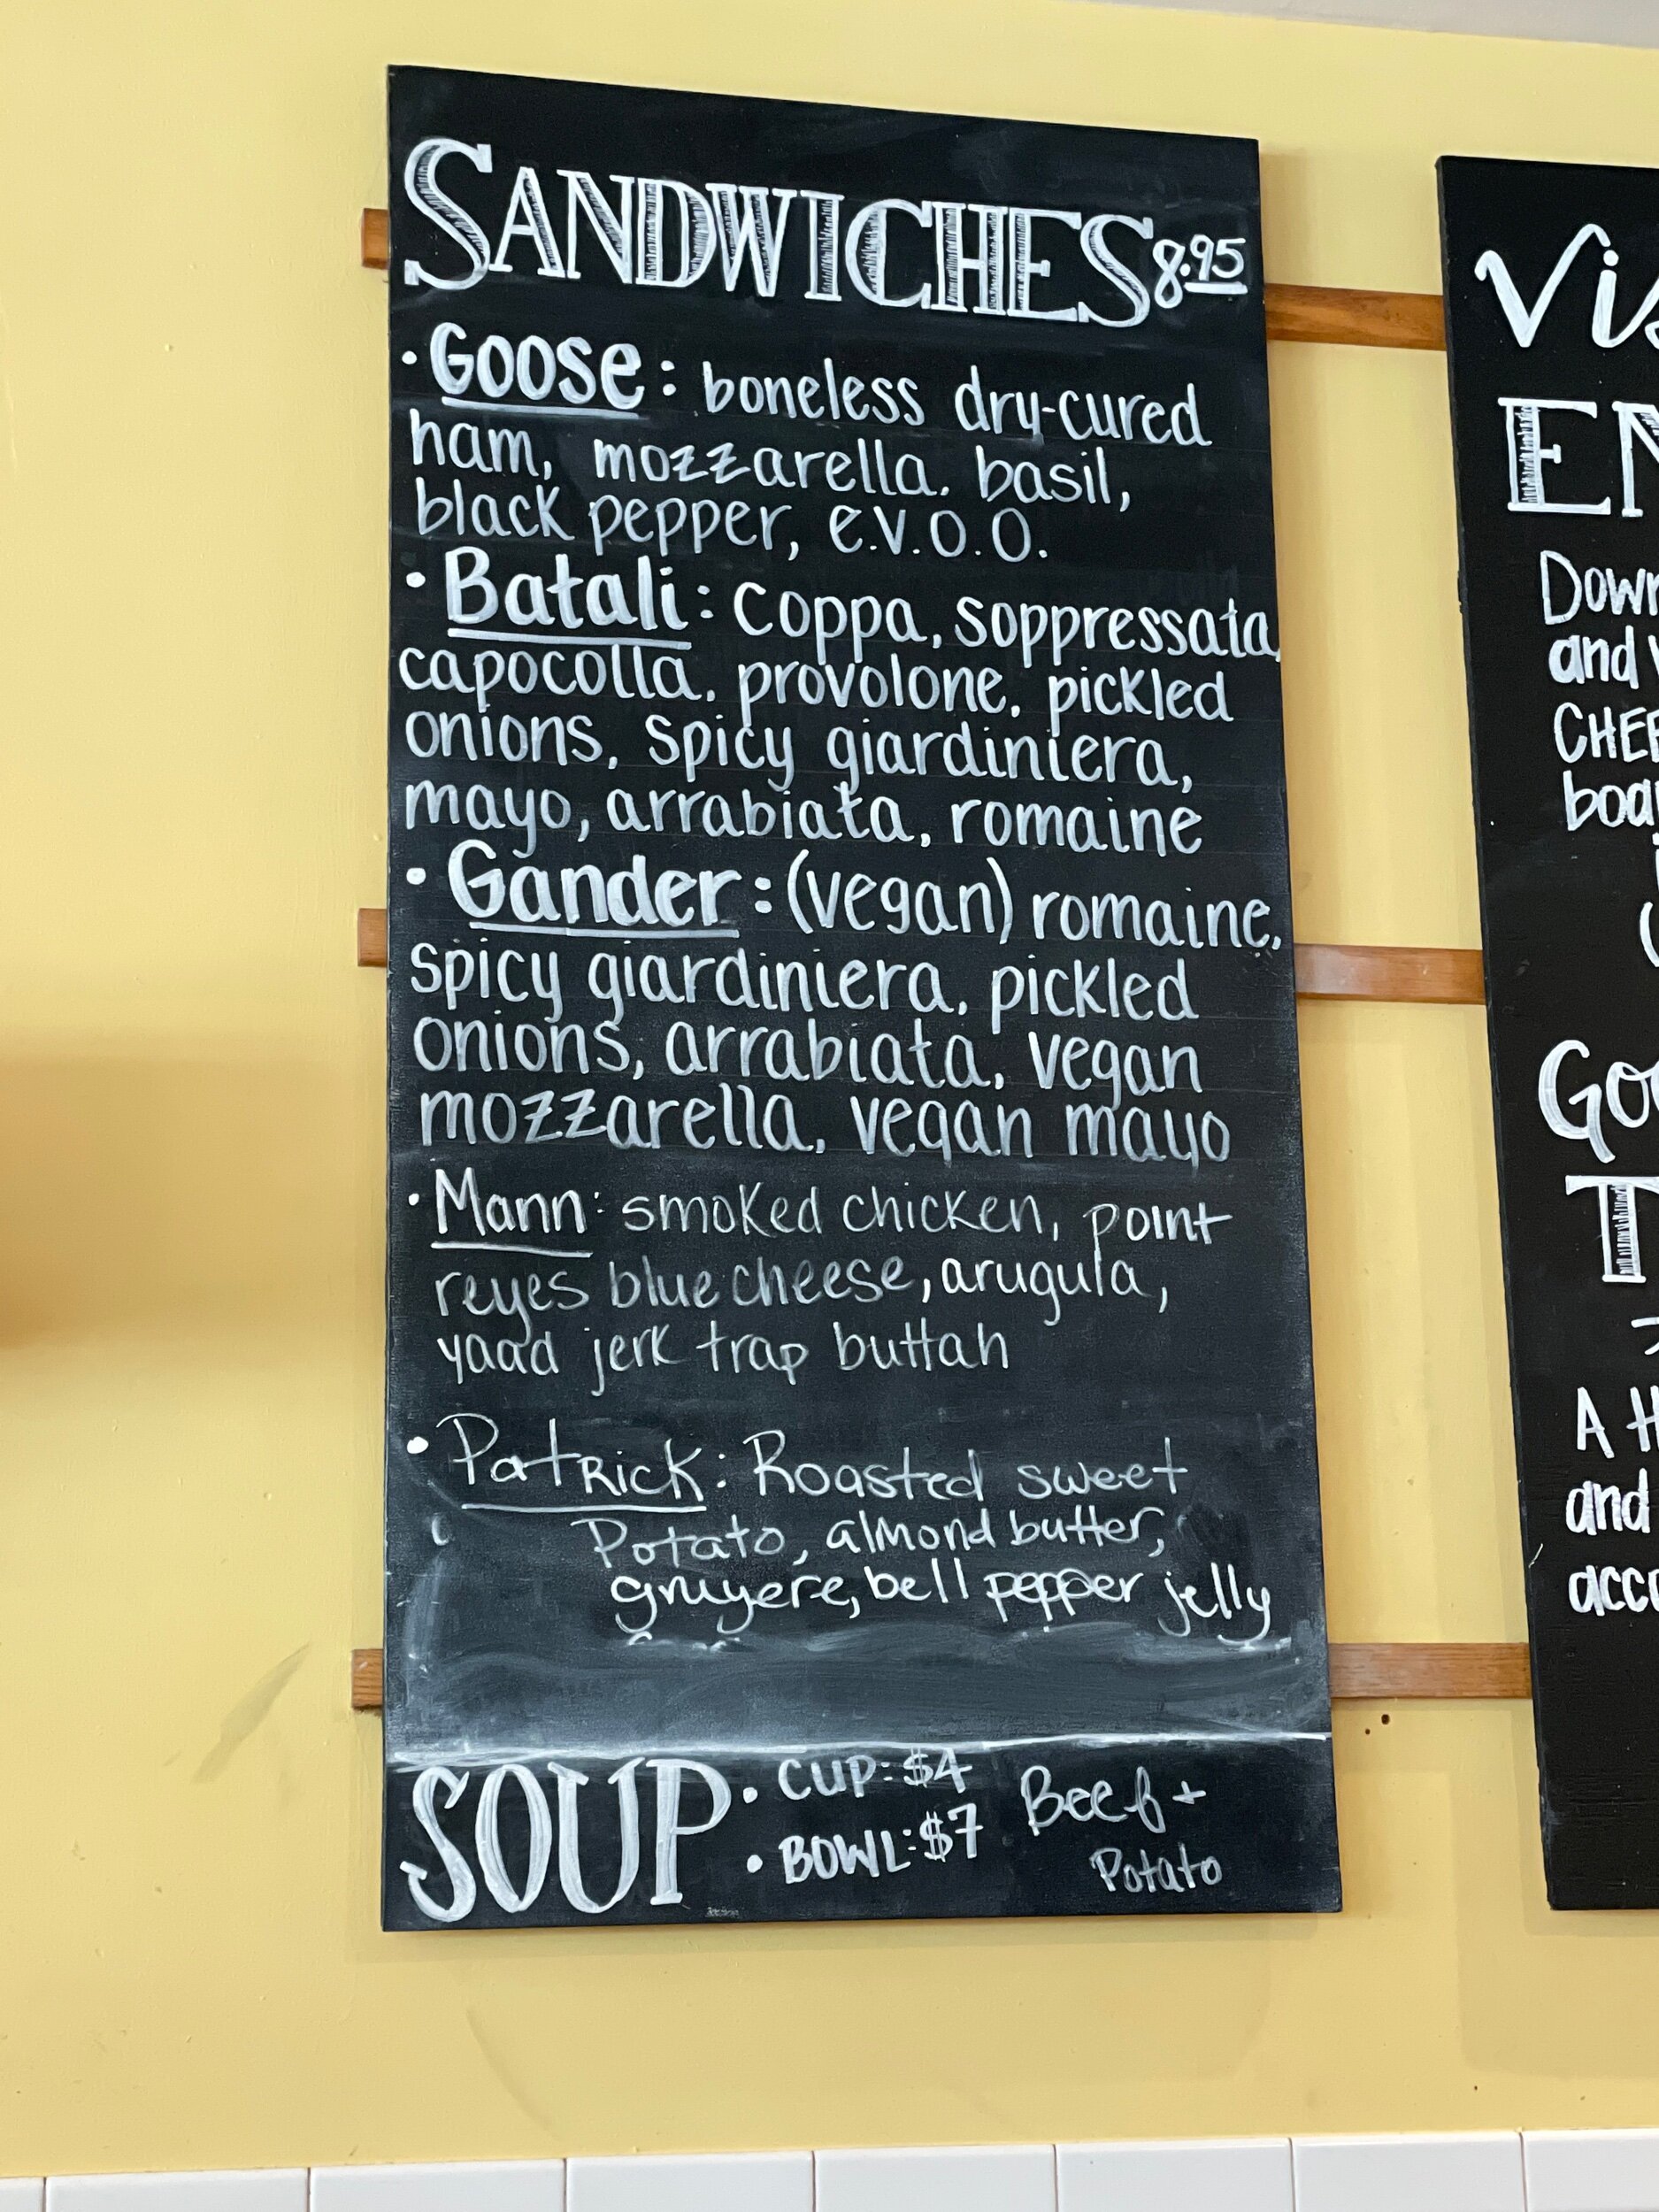 SANDWICHES 8.95
• Goose: boneless dry-cured
ham, mozzarella. basil,
black pepper, e.v.o.o.
• Batali: coppa, soppressata,
capocolla. provolone. pickled
onions. spicy giardiniera,
mayo, arrabiata. romaine
• Gander: (vegan) romaine.
spicy giardiniera. pickled
onions, arrabiata. vegan
mozzarella. vegan mayo
• Mann: smoked chicken, point
reyes blue cheese, arugula,
yaad jerk trap buttah
• Patrick: Roasted sweet
Potato, almond butter,
gruyere, bell pepper jelly
SOUP • CUP: $4 Beef +
• BOWL: $7 Potato
and
A
and